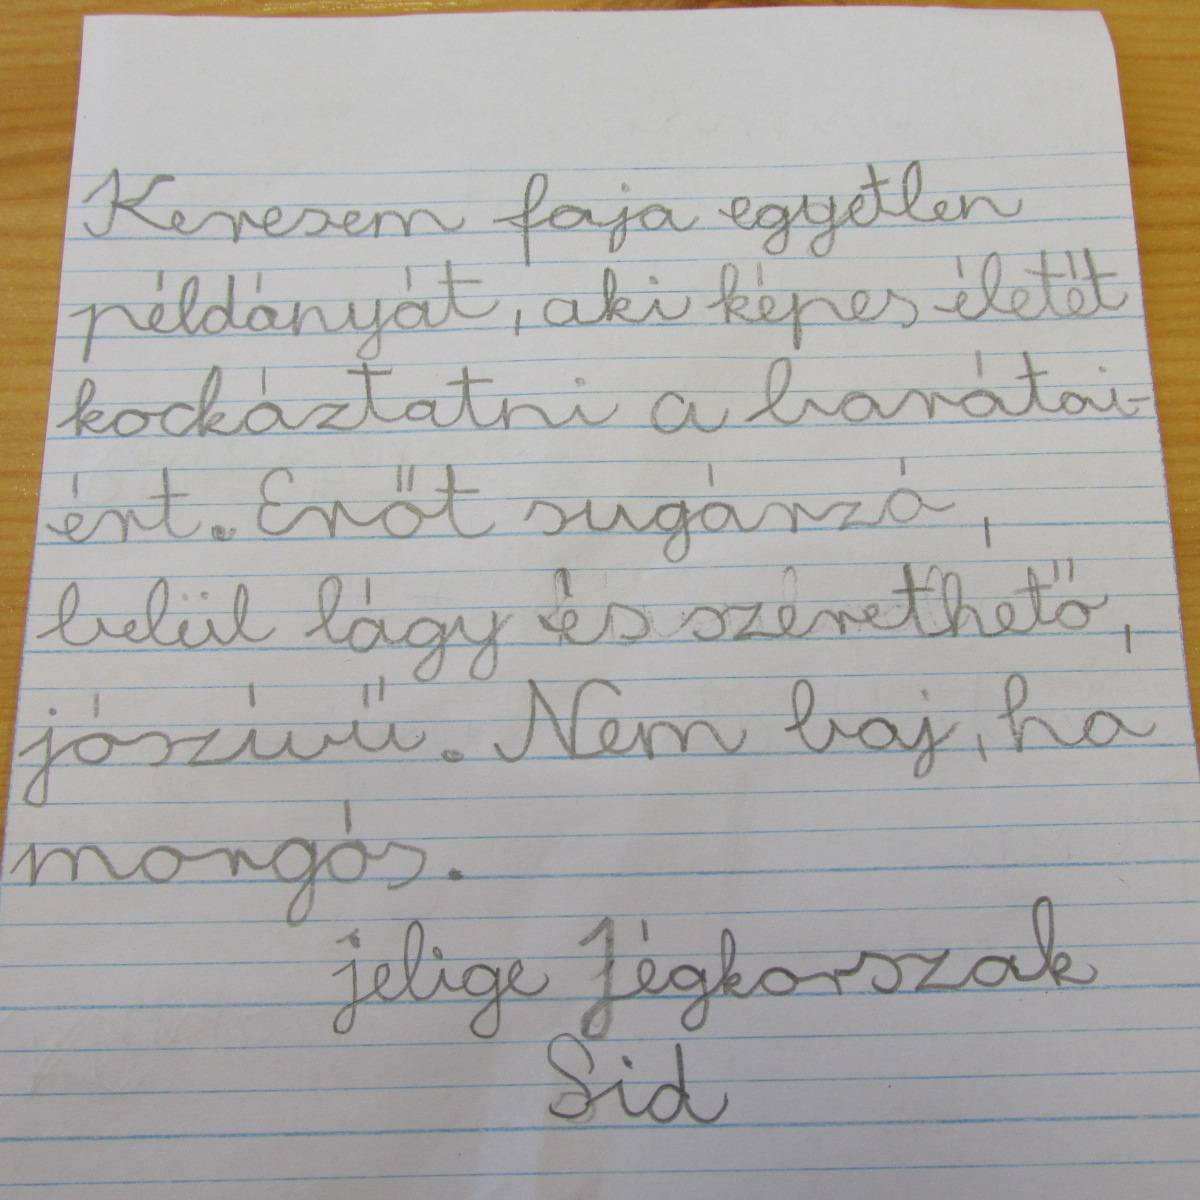 Keresem faja egyetlen
példányát, aki képes életét
kockáztatni a barátai-
ért. Erőt sugárzó,
belül lágy és szerethető,
jószívű. Nem baj, ha
morgós.
jelige Jégkorszak
Sid